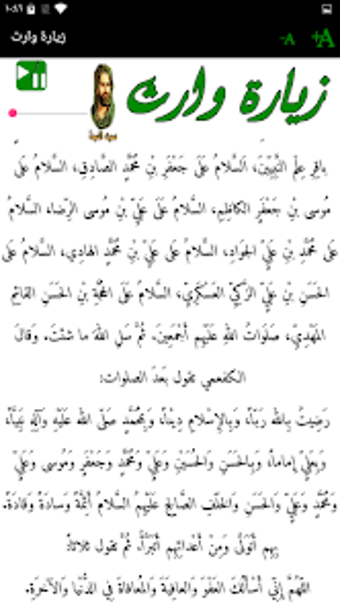 ١٠:٨٦
زيارة وارث
-A
+A
زيارة وارث
باقِرِ عِلْمِ النَّبِيِّينَ، اَلسَّلامُ عَلَى جَعْفَرِ بْنِ مُحَمَّدٍ الصَّادِقِ، السَّلامُ عَلَى
مُوسى بْنِ جَعْفَرٍ الكاظِمِ، السَّلامُ عَلَى عَلِيِّ بْنِ مُوسى الرِّضا، السَّلامُ
عَلَى مُحَمَّدِ بْنِ عَلِيٍّ الجَوادِ، السَّلامُ عَلَى عَلِيِّ بْنِ مُحَمَّدٍ الهادِي، السَّلامُ عَلَى
الحَسَنِ بْنِ عَلِيٍّ الزَّكِيِّ العَسْكَرِيِّ، السَّلامُ عَلَى الحُجَّةِ بْنِ الحَسَنِ القائِمِ
المَهْدِيِّ، صَلَوَاتُ اللهِ عَلَيْهِم أَجْمَعِينَ، ثُمَّ سَلِ اللهَ ما شئتَ. وقالَ
الكفعمي تقول بَعدَ الصلوات:
رَضِيتُ بِاللهِ رَبّاً، وَبِالإِسْلامِ دِيناً، وَبِمُحَمَّدٍ صَلَّى الله عَلَيْهِ وَآلِهِ نَبِيّاً،
وَبِعَلِيٍّ إِماماً، وَبِالحَسَنِ وَالحُسَيْنِ وَعَلِيٍّ وَمُحَمَّدٍ وَجَعْفَرٍ وَمُوسى وَعَلِيٍّ
وَمُحَمَّدٍ وَعَلِيٍّ وَالحَسَنِ وَالخَلَفِ الصَّالِحِ عَلَيْهِمُ السَّلامُ أَئِمَّةً وَسادَةً وَقادَةً.
بِهِم أَتَوَلَّى وَمِنْ أَعدائِهِم أَتَبَرَّأُ. ثُمَّ تقول ثلاثاً:
اللّهُمَّ إِنِّي أَسْأَلُكَ العَفْوَ وَالعافِيَةَ وَالمُعافاةَ فِي الدُّنْيا وَالآخِرَةِ.